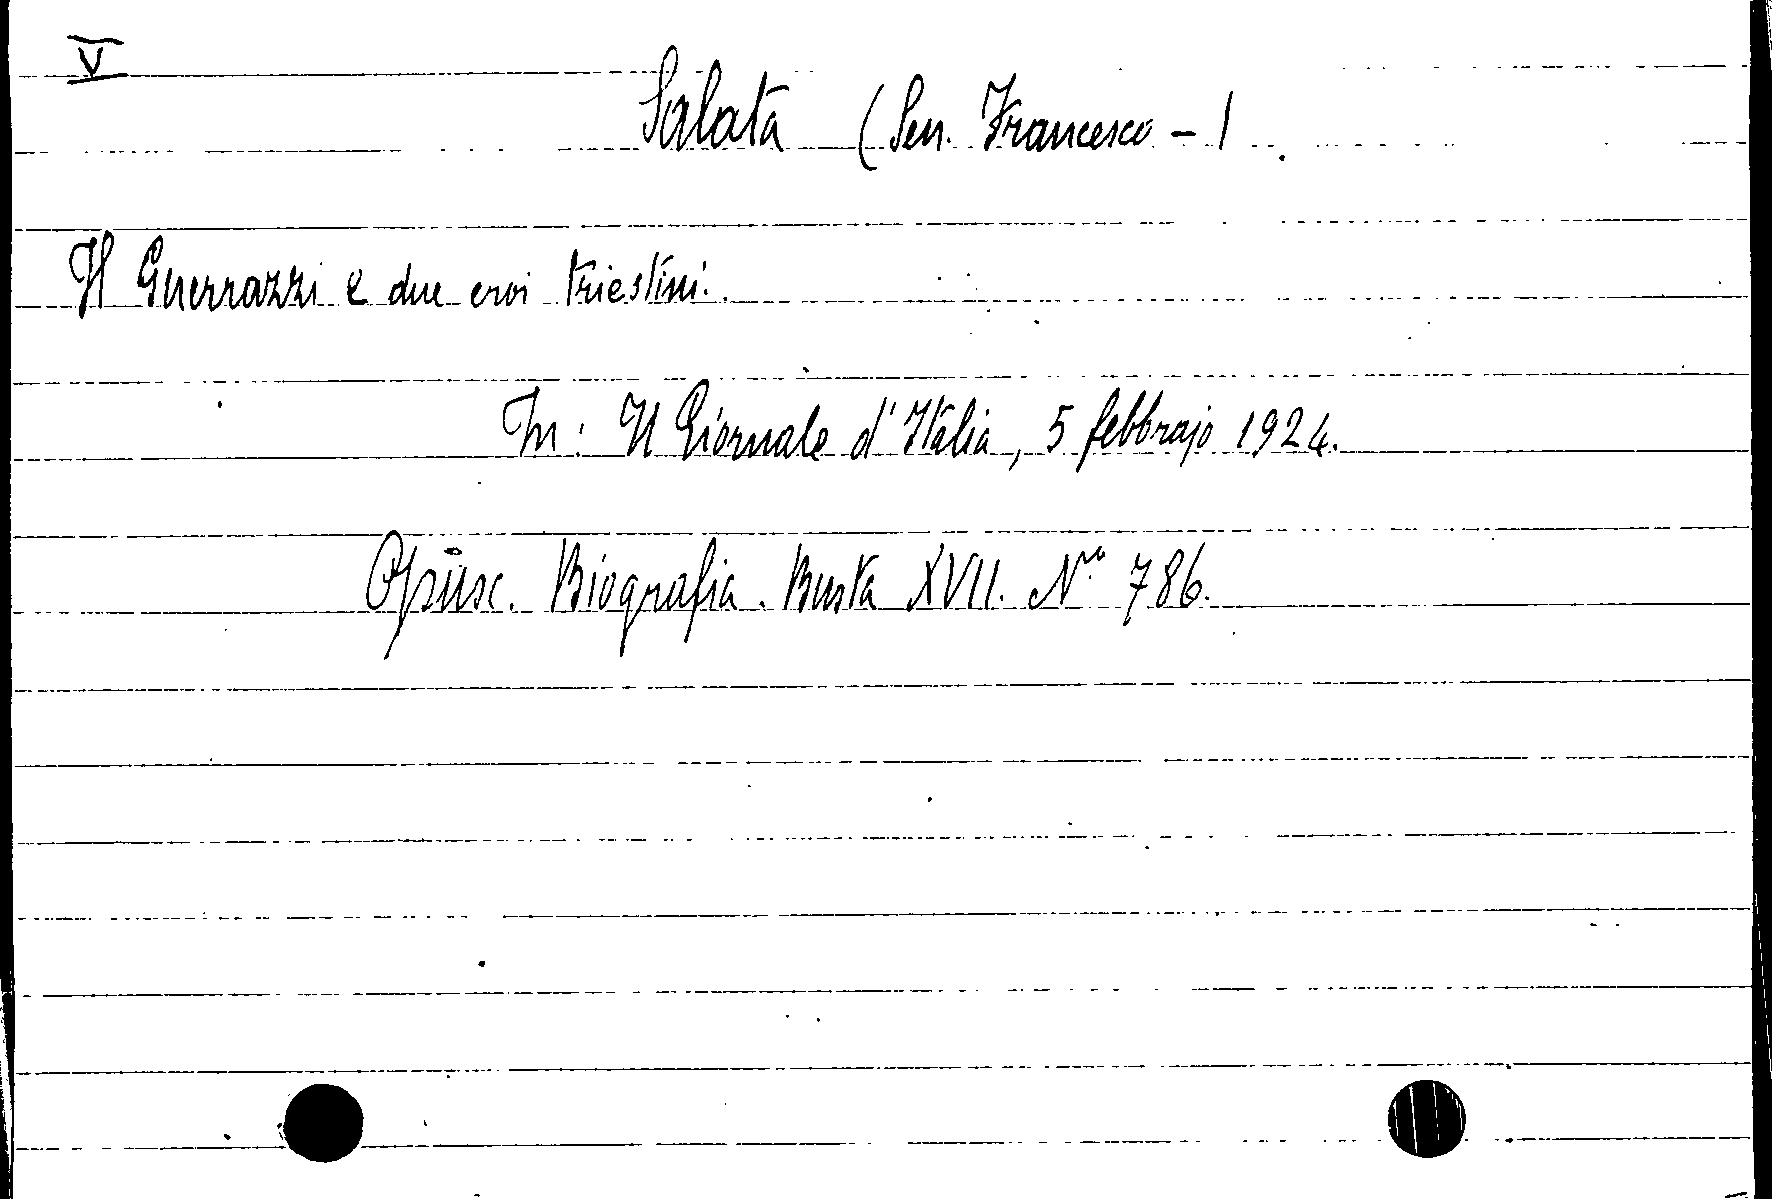 V
Salata (Sen. Francesco - )
Il Guerrazzi e due eroi triestini.
In: Il Giornale d'Italia, 5 febbrajo 1924.
Opusc. Biografia. Busta XVII. No. 786.